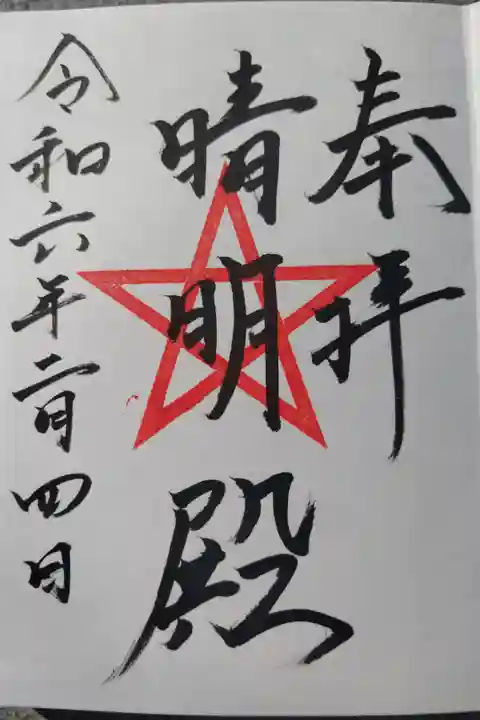 奉拝
晴明殿
令和六年二月四日